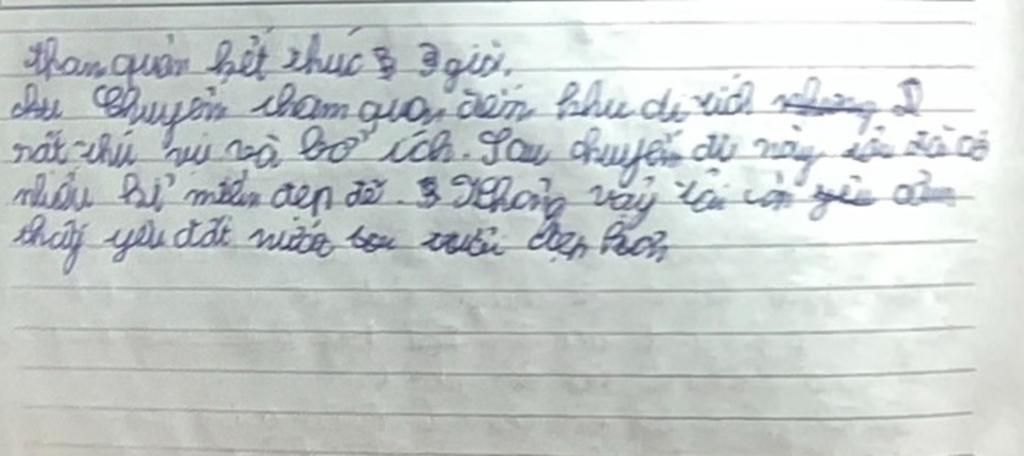 than quản kết thúc 3 giờ.
Chuyến tham quan đến khu di tích
rất thú vị và bổ ích. Sau chuyến đi này tôi đã có
nhiều kỉ miền đẹp đẽ. Không vậy tôi còn
thấy yêu đất nước tươi đẹp